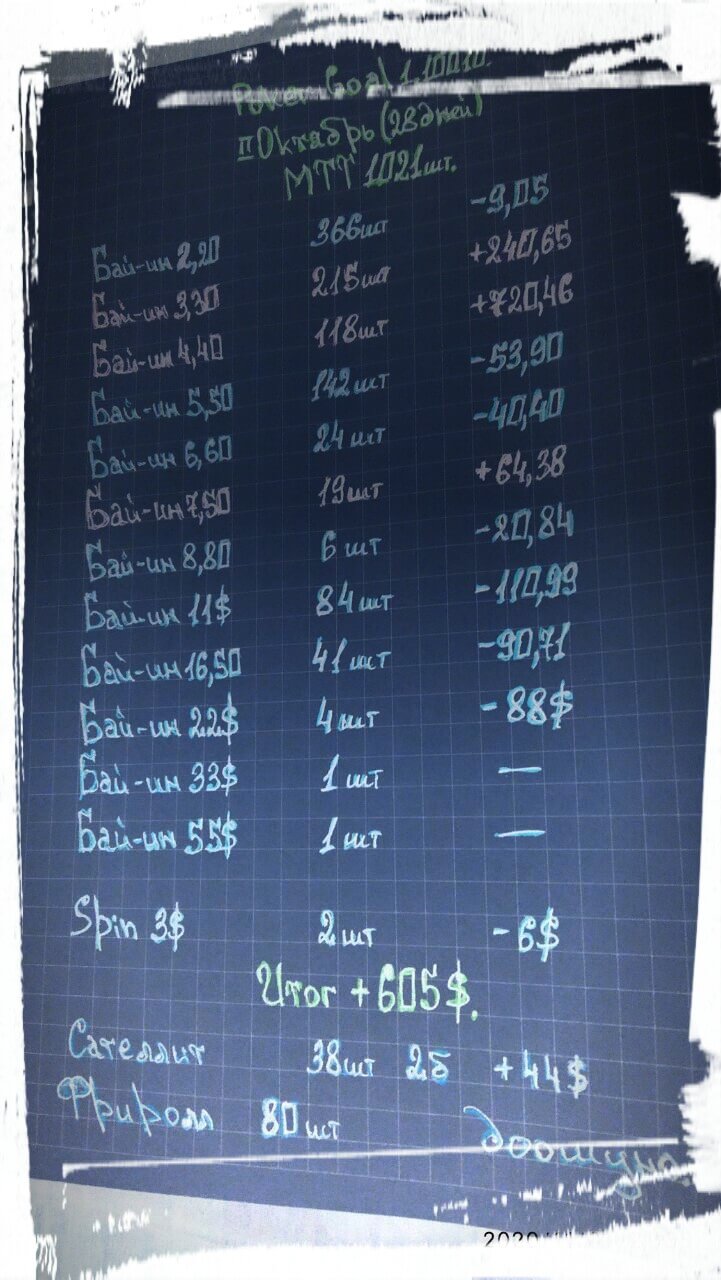 Poker Goal 1.10010.
II Октябрь (28 дней)
МТТ 1021 шт.
Бай-ин 2,20 366шт -9,05
Бай-ин 3,30 215шт +240,65
Бай-ин 4,40 118шт +720,46
Бай-ин 5,50 142шт -53,90
Бай-ин 6,60 24 шт -40,40
Бай-ин 7,50 19шт +64,38
Бай-ин 8,80 6 шт -20,84
Бай-ин 11$ 84 шт -110,99
Бай-ин 16,50 41 шт -90,71
Бай-ин 22$ 4 шт -88$
Бай-ин 33$ 1 шт —
Бай-ин 55$ 1 шт —
Spin 3$ 2 шт -6$
Итог +605$.
Сателлит 38шт 2б +44$
Фриролл 80 шт
2020